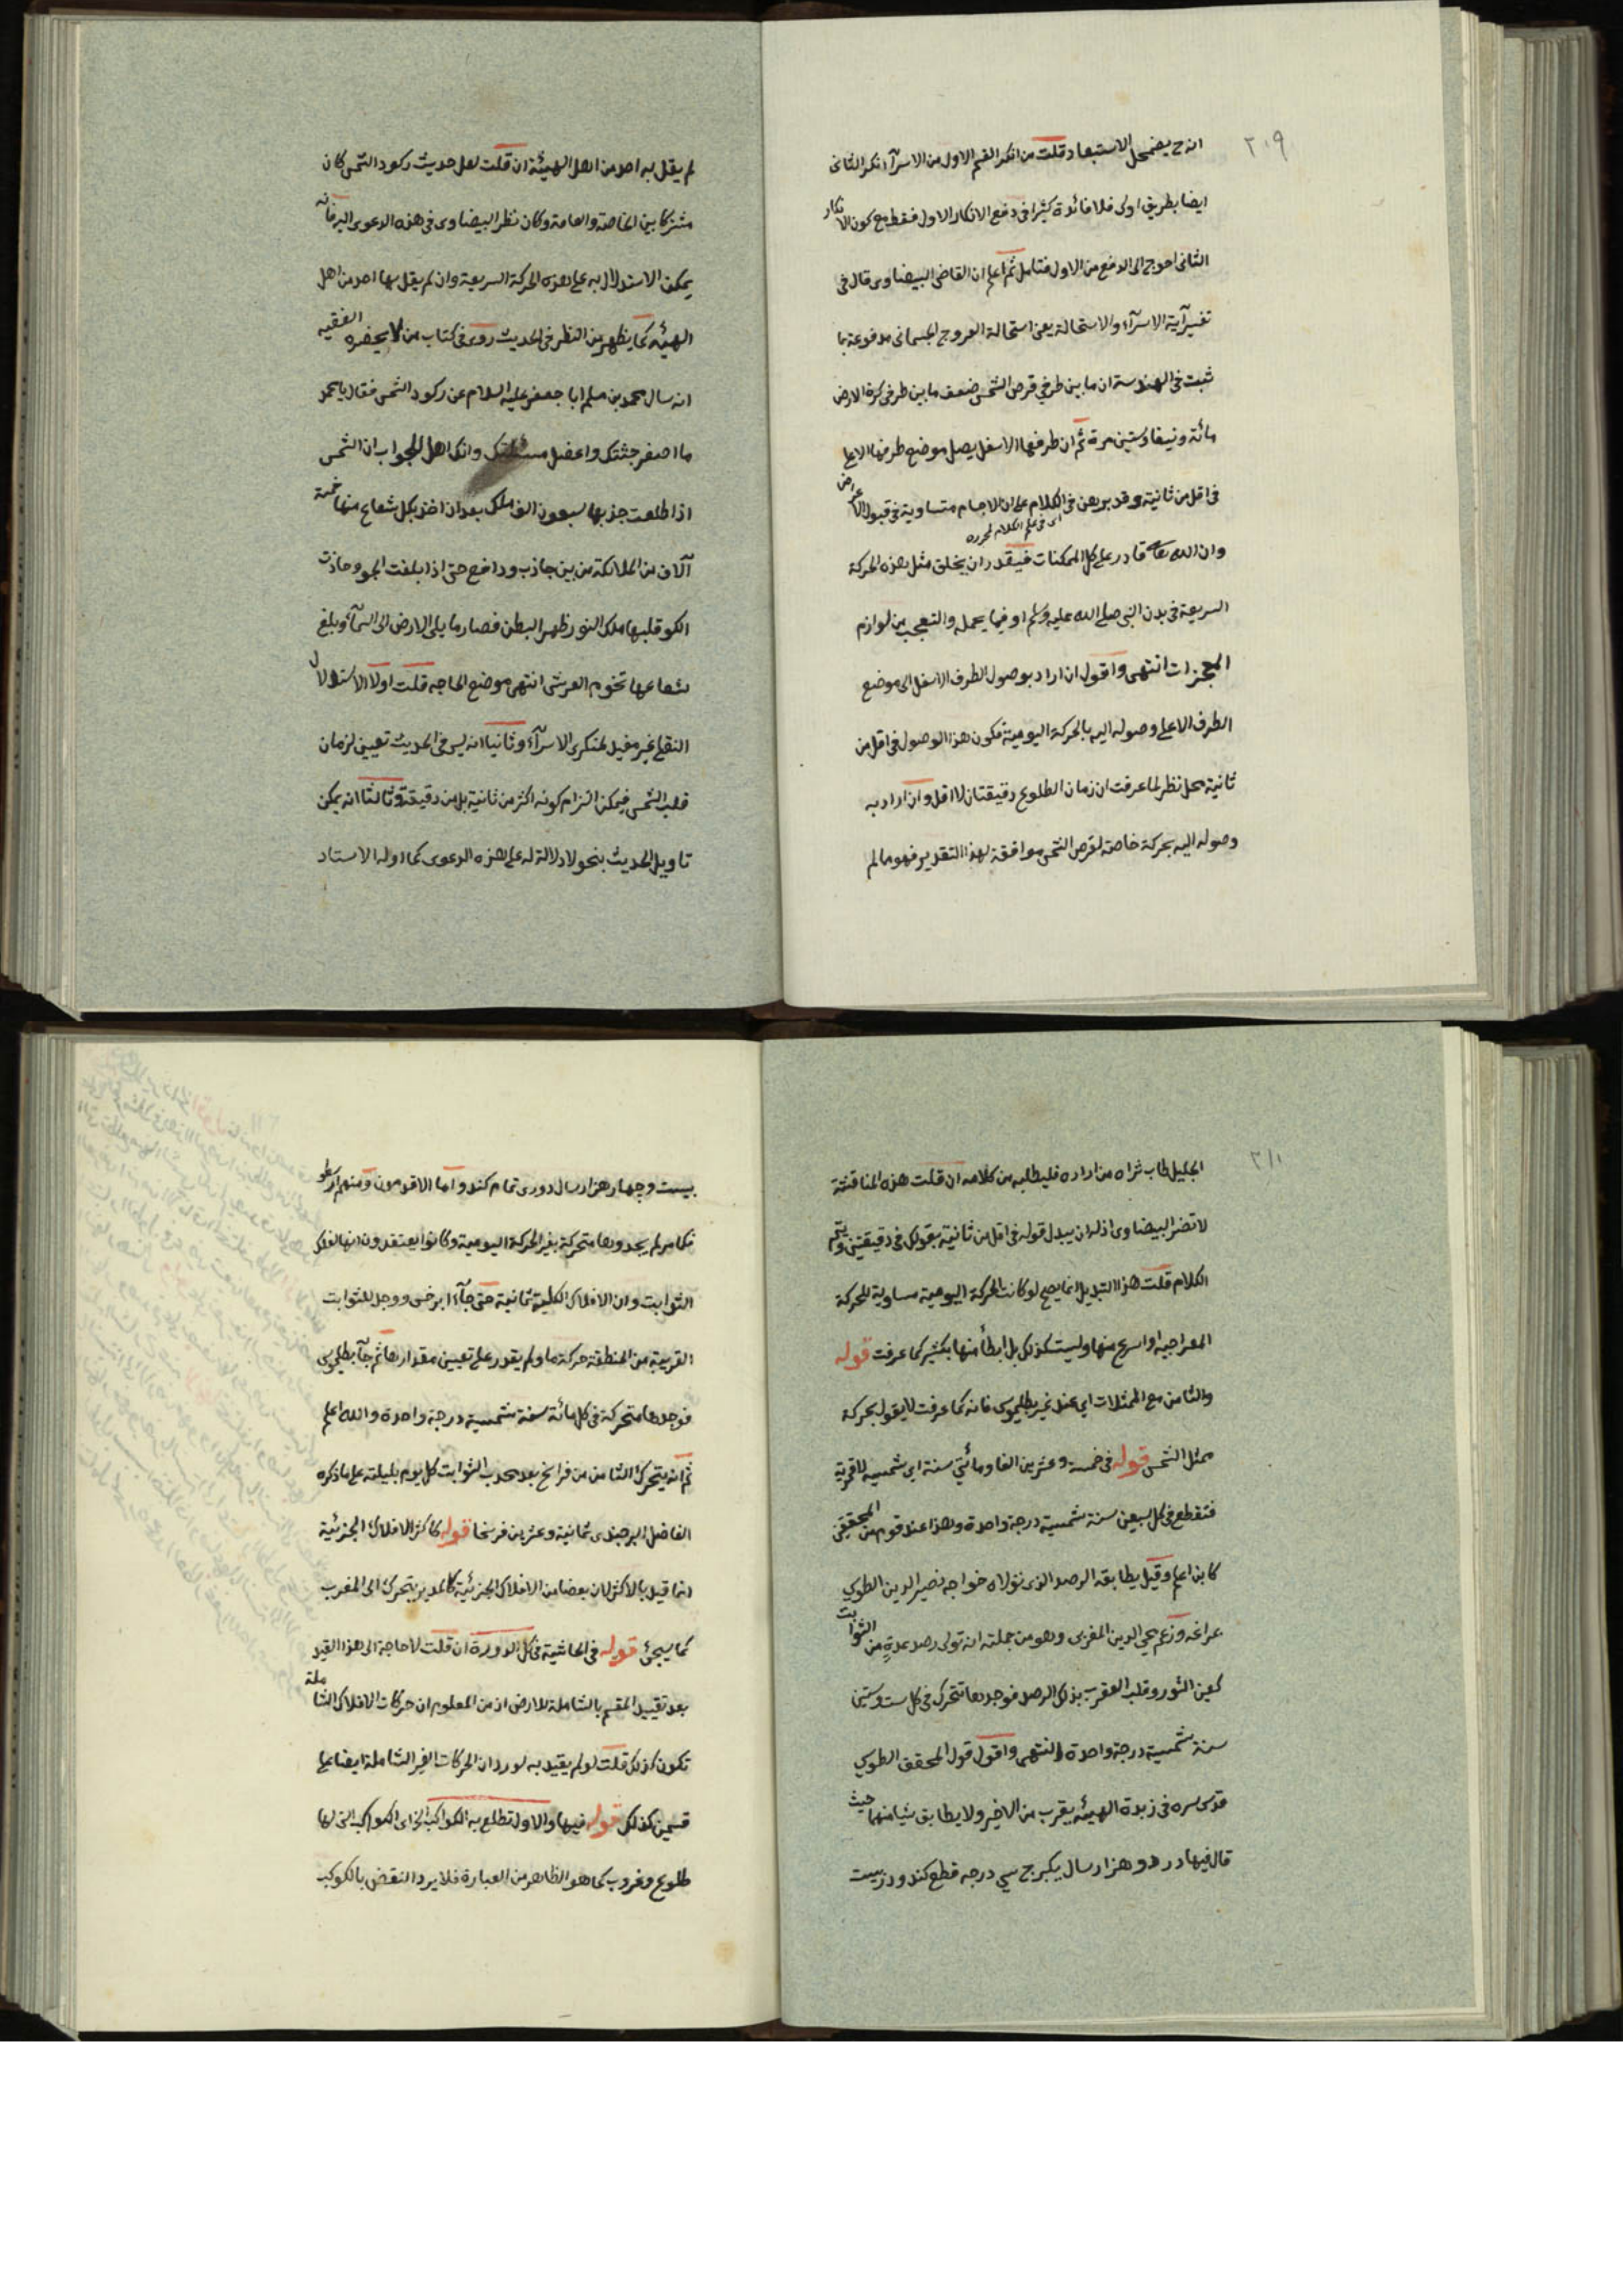 ٢٠٩
انه ح يضمحل الاستبعاد قلت من انكر القسم الاول من الاسرآء انكر الثانى
ايضا بطريق اولى فلا فائدة كثيرا فى دفع الانكار الاول فقط مع كون الانكار
الثانى احوج الى الدفع من الاول فتامل ثم اعلم ان القاضى البيضاوى قال فى
تفسير آية الاسرآء والاستحالة يعنى استحالة العروج الجسمانى مدفوعة بما
ثبت فى الهندسة ان ما بين طرفي قرص الشمس ضعف ما بين طرفى كرة الارض
مائة ونيفا وستين مرة ثم ان طرفها الاسفل يصل موضع طرفها الاعلى
فى اقل من ثانية وقد برهن فى الكلام على ان الاجسام متساوية فى قبول الاعراض
اى فى علم الكلام لمحرره
وان الله تعالى قادر على كل الممكنات فيقدر ان يخلق مثل هذه الحركة
السريعة فى بدن النبى صلى الله عليه وسلم او فيما يحمله والتعجب من لوازم
المعجزات انتهى واقول ان اراد بوصول الطرف الاسفل الى موضع
الطرف الاعلى وصوله اليه بالحركة اليومية فكون هذا الوصول فى اقل من
ثانية محل نظر لما عرفت ان زمان الطلوع دقيقتان لا اقل وان اراد به
وصوله اليه بحركة خاصة لقرص الشمس موافقة لهذا التقدير فهو مما لم
لم يقل به احد من اهل الهيئة ان قلت لعل حديث ركود الشمس كان
مشتركا بين الخاصة والعامة وكان نظر البيضاوى فى هذه الدعوى اليه فانه
يمكن الاستدلال به على هذه الحركة السريعة وان لم يقل بها احد من اهل
الهيئه كما يظهر من النظر فى الحديث روى فى كتاب من لا يحضره الفقيه
انه سال محمد بن مسلم ابا جعفر عليه السلام عن ركود الشمس فقال يا محمد
ما اصغر جثتك واعضل مسئلتك وانك اهل للجواب ان الشمس
اذا طلعت جذبها سبعون الف ملك بعد ان اخذ بكل شعاع منها خمسة
آلاف من الملائكة من بين جاذب ودافع حتى اذا بلغت الجو وحاذت
الكو قلبها ملك النور ظهر البطن فصار ما يلى الارض الى السمآء وبلغ
شعاعها تخوم العرش انتهى موضع الحاجه قلت اولا الاستدلال
النقلى غير مفيد لمنكرى الاسرآء وثانيا انه ليس فى الحديث تعيين لزمان
قلب الشمس فيمكن التزام كونه اكثر من ثانية بل من دقيقة وثالثا انه يمكن
تاويل الحديث بنحو لا دلالة له على هذه الدعوى كما اوله الاستاد
٢١٠
الجليل طاب ثراه من اراده فليطلبه من كلامه ان قلت هذه المناقشة
لا تضر البيضاوى اذ له ان يبدل قوله فى اقل من ثانية بقولك فى دقيقتين ويتم
الكلام قلت هذا التبديل انما يصح لو كانت الحركة اليومية مساوية للحركة
المعراجيه او اسرع منها وليست كذلك بل ابطأ منها بكثير كما عرفت قوله
والثامن مع الممثلات اي عند غير بطليموس فانه كما عرفت لا يقول بحركة
ممثل الشمس قوله فى خمسة وعشرين الفا ومائتي سنة اي شمسيه لا قمرية
فتقطع فى كل سبعين سنة شمسية درجة واحدة وهذا عند قوم من المحققين
كابن اعلم وقيل يطابقه الرصد الذى تولاه خواجه نصير الدين الطوسي
بمراغه وزعم محي الدين المغربى وهو من جملته انه تولى رصد عدةٍ من الثوابت
كعين الثور وقلب العقرب بذلك الرصد فوجدها تتحرك فى كل ست وستين
سنة شمسية درجة واحدة انتهى واقول قول المحقق الطوسي
قدس سره فى زبدة الهيئه يقرب من الاخير ولا يطابق شيا منهما حيث
قال فيها در دو هزار سال يكبرج سي درجه قطع كند ودر بيست
بيست وچهار هزار سال دورى تمام كند واما الاقدمون ومنهم ارسطو
فكما مر لم يجدوها متحركة بغير الحركة اليومية وكانوا يعتقدون انها فلك
الثوابت وان الافلاك الكلية ثمانية حتى جآء ابرخس ووجد للثوابت
القريبة من المنطقة حركة ما ولم يقدر على تعيين مقدارها ثم جآء بطلميوس
فوجدها متحركة فى كل مائة سنة شمسية درجة واحدة والله اعلم
ثم انه يتحرك الثامن من فراسخ بعد محدب الثوابت كل يوم بليلته على ما ذكره
الفاضل البرجندى ثمانية وعشرين فرسخا قوله كاكثر الافلاك الجزئية
انما قيد بالاكثر لان بعضا من الافلاك الجزئية كالمدير يتحرك الى المغرب
كما سيجئ قوله فى الحاشية فى كل الدورة ان قلت لا حاجة الى هذا القيد
بعد تقييد المقسم بالشاملة للارض اذ من المعلوم ان حركات الافلاك الشاملة
تكون كذلك قلت لو لم يقيد به لورد ان الحركات الغير الشاملة ايضا على
قسمين كذلك قوله فيها والاول تطلع به الكواكب الخ اى الكواكب التى لها
طلوع وغروب كما هو الظاهر من العبارة فلا يرد النقض بالكوكب